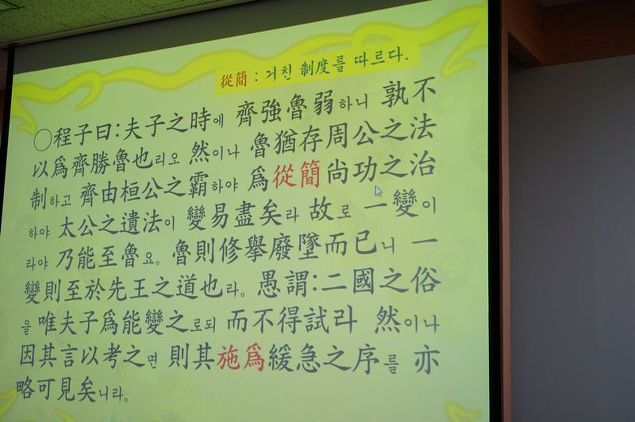 從簡 : 거친 制度를 따르다.
○程子曰:夫子之時에 齊強魯弱하니 孰不
以爲齊勝魯也리오 然이나 魯猶存周公之法
制하고 齊由桓公之霸하야 爲從簡尚功之治
하야 太公之遺法이 變易盡矣라 故로 一變이
라야 乃能至魯요. 魯則修擧廢墜而已니 一
變則至於先王之道也라. 愚謂:二國之俗
을 唯夫子爲能變之로되 而不得試라 然이나
因其言以考之면 則其施爲緩急之序를 亦
略可見矣니라.